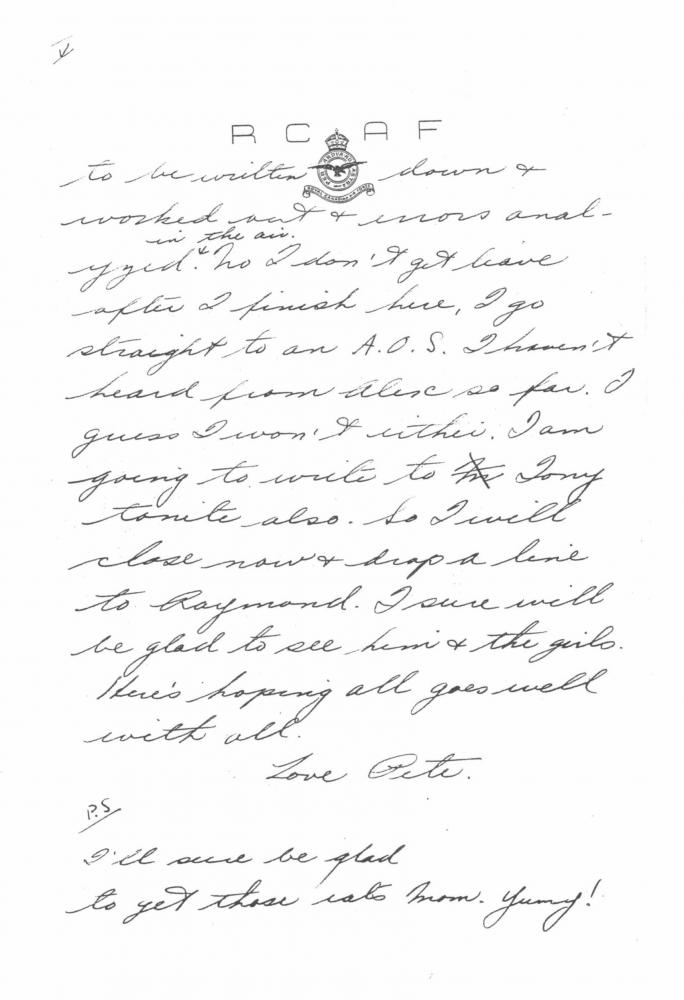 4
R C A F
PER ARDUA AD ASTRA
ROYAL CANADIAN AIR FORCE
to be written down &
worked out & errors anal-
in the air.
yzed. No I don't get leave
after I finish here, I go
straight to an A.O.S. I haven't
heard from Alex so far. I
guess I won't either. I am
going to write to Tony
tonite also. So I will
close now & drop a line
to Raymond. I sure will
be glad to see him & the girls.
Here's hoping all goes well
with all.
Love Pete.
P.S
I'll sure be glad
to get those eats Mom. Yumy!